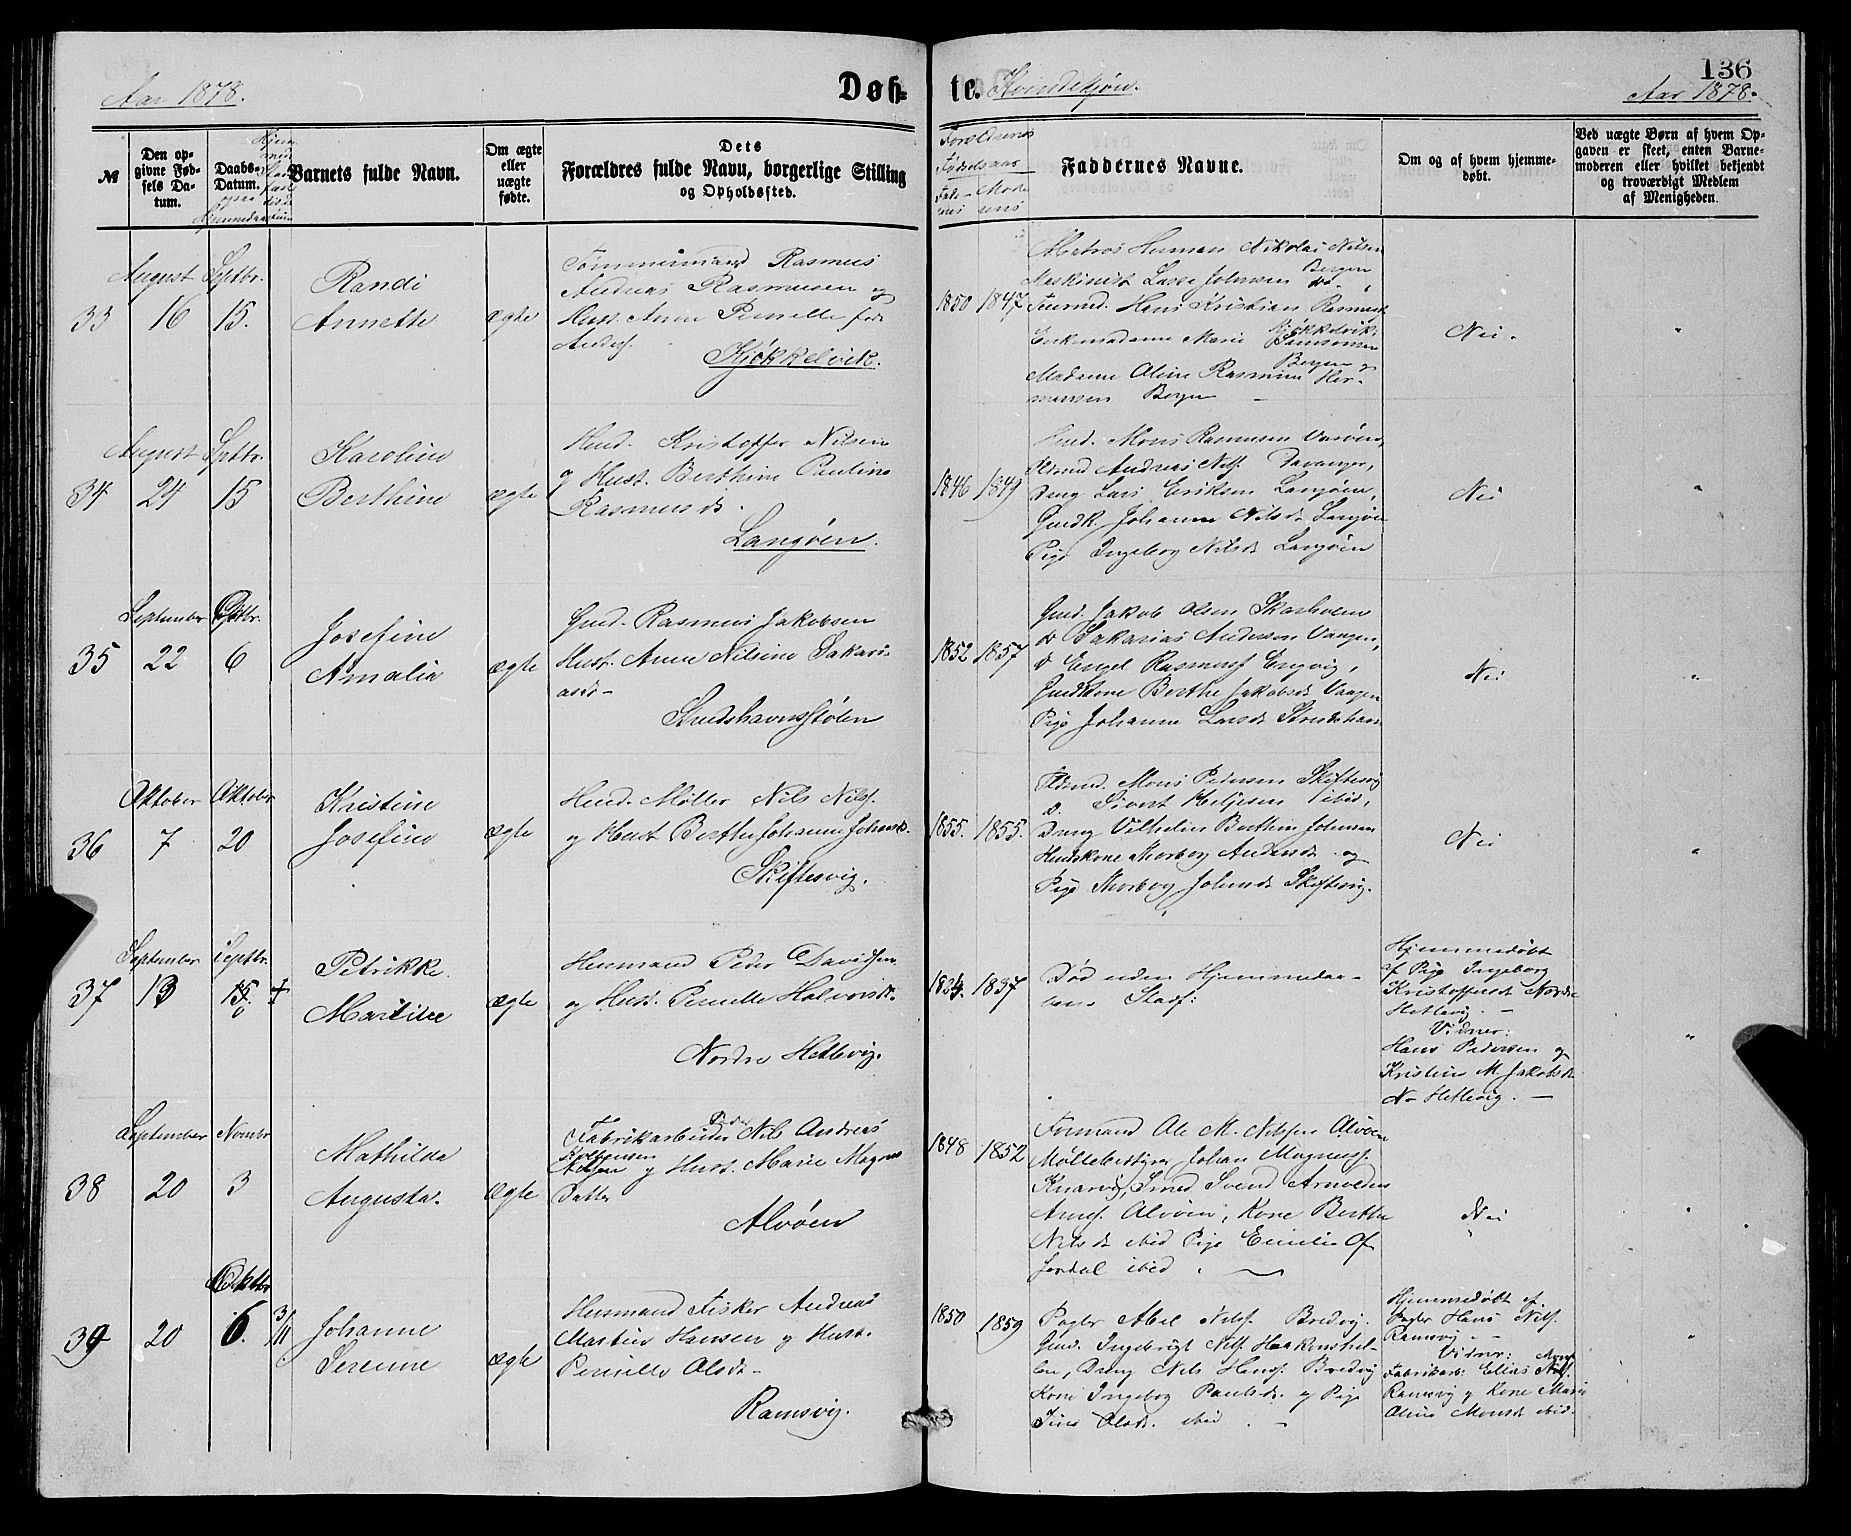 136
Aar 1878.
Døb-
te. Kvindekjøn.
Aar 1878.
№
Den op-
givne Fød-
sels Da-
tum.
Daabs-
Datum.
Barnets fulde Navn.
Om ægte
eller
uægte
fødte.
Dets
Forældres fulde Navn, borgerlige Stilling
og Opholdssted.
Forældrenes
Fødselsaar
Faddernes Navne.
Om og af hvem hjemme-
døbt.
Ved uægte Børn af hvem Op-
gaven er skeet, enten Barne-
moderen eller hvilket bekjendt
og troværdigt Medlem
af Menigheden.
33
August
16
Septbr.
15.
Randi
Annette
ægte
Tømmermand Rasmus
Andreas Rasmusen og
Hust. Anne Pernille født
Anders.
Kjøkkelvik.
1850 1847
Matros Herman Nikolai Nilsen
Bergen
Maskinist Lasse Johnsen do.
Huusmd. Hans Kristian Rasmuss.
Kjøkkelvik,
Enkemadame Marie Samsonsen
Bergen og
Madame Oline Rasmine Her-
mansen Bergen
Nei.
"
34
August
24
Septbr.
15
Karoline
Berthine
ægte
Husd. Kristoffer Nilsen
og Hust. Berthine Pauline
Rasmusd.
Langøen.
1846 1849
Gmd. Mons Rasmusen
Andreas Nils. Davanger,
Dreng Lars Eriksen Langøen,
Gmdk. Johanne Nilsd. Langøen
Pige Ingeborg Nilsd. Langøen
Nei
"
35
September
22
6
Josefine
Amalia
ægte
Gmd. Rasmus Jakobsen
Hust. Anne Nilsine Sakari-
asd.
Strudshavnsstølen
1852 1857
Gmd. Jakob Olsen Skarholm
do Sakarias Andersen Vaagen,
do Engel Rasmuss. Engvig,
Gmdkone Berthe Jakobsd. Vaagen
Pige Johanne Larsd. Strudshavn
Nei
"
36
Oktober
7
Oktober
20
Kristine
Josefine
ægte
Husd. Møller Nils Nilss.
og Hust Berthe Johanne Johansd.
Skiftesvig.
1855. 1855.
Mons Pedersen Skiftesvig
do. Sivert Heljesen ibid,
Dreng Vilhelm Berthin Johnsen
Huskone Thorborg Andersd. og
Pige Thorborg Johnsd. Skiftesvig.
Nei
"
37
September
13
Septbr.
15.
+
Petrikke
ægte
Husmand Peder Davidsen
og Hust. Pernille Halvorsd.
Nordre Hetlevig.
1824. 1837
Død uden Hjemmedaa-
bens Stadf:
Hjemmedøbt
af Pige Ingeborg
Kristoffersd. Nordre
Hetlevig. —
Vidner:
Hans Pedersen og
Kristine M. Jakobsd.
N. Hetlevig. —
"
38
September
20
Novembr
3
Mathilda
Augusta.
ægte
Peder
Fabrikarbeider Nils Andreas
Nilsen og Hust. Marie Magnus-
Datter
Alvøen
1848 1852
Formand Ole M. Nilsen Alvøen
Møllebestyrer Johan Magnuss.
Knarvig, Smed Svend Arnoldus
Arnes. Alvøen, Kone Berthe
Nilsd. ibid Pige Emilie Of-
ferdal ibid.
Nei
"
39
20
Oktbr
6.
3/11
Johanne
Serinne
ægte
Husmand Fisker Andreas
Martin Hansen og Hust.
Pernille Olsd.
Ramsvig.
1850 1859
Pagter Abel Nils. Bredvig
Gmd. Ingebrigt Nils. Haakonshel-
len, Dreng Nils Hans. Bredvig
Kone Ingeborg Paulsd. og Pige
Olsd. ibid.
Hjemmedøbt af
Pagter Hans Nils.
Ramsvig. —
Vidner:
Fabrikarb: Elias
Ramsvig og Kone Marie
Oline Monsd. ibid.
"